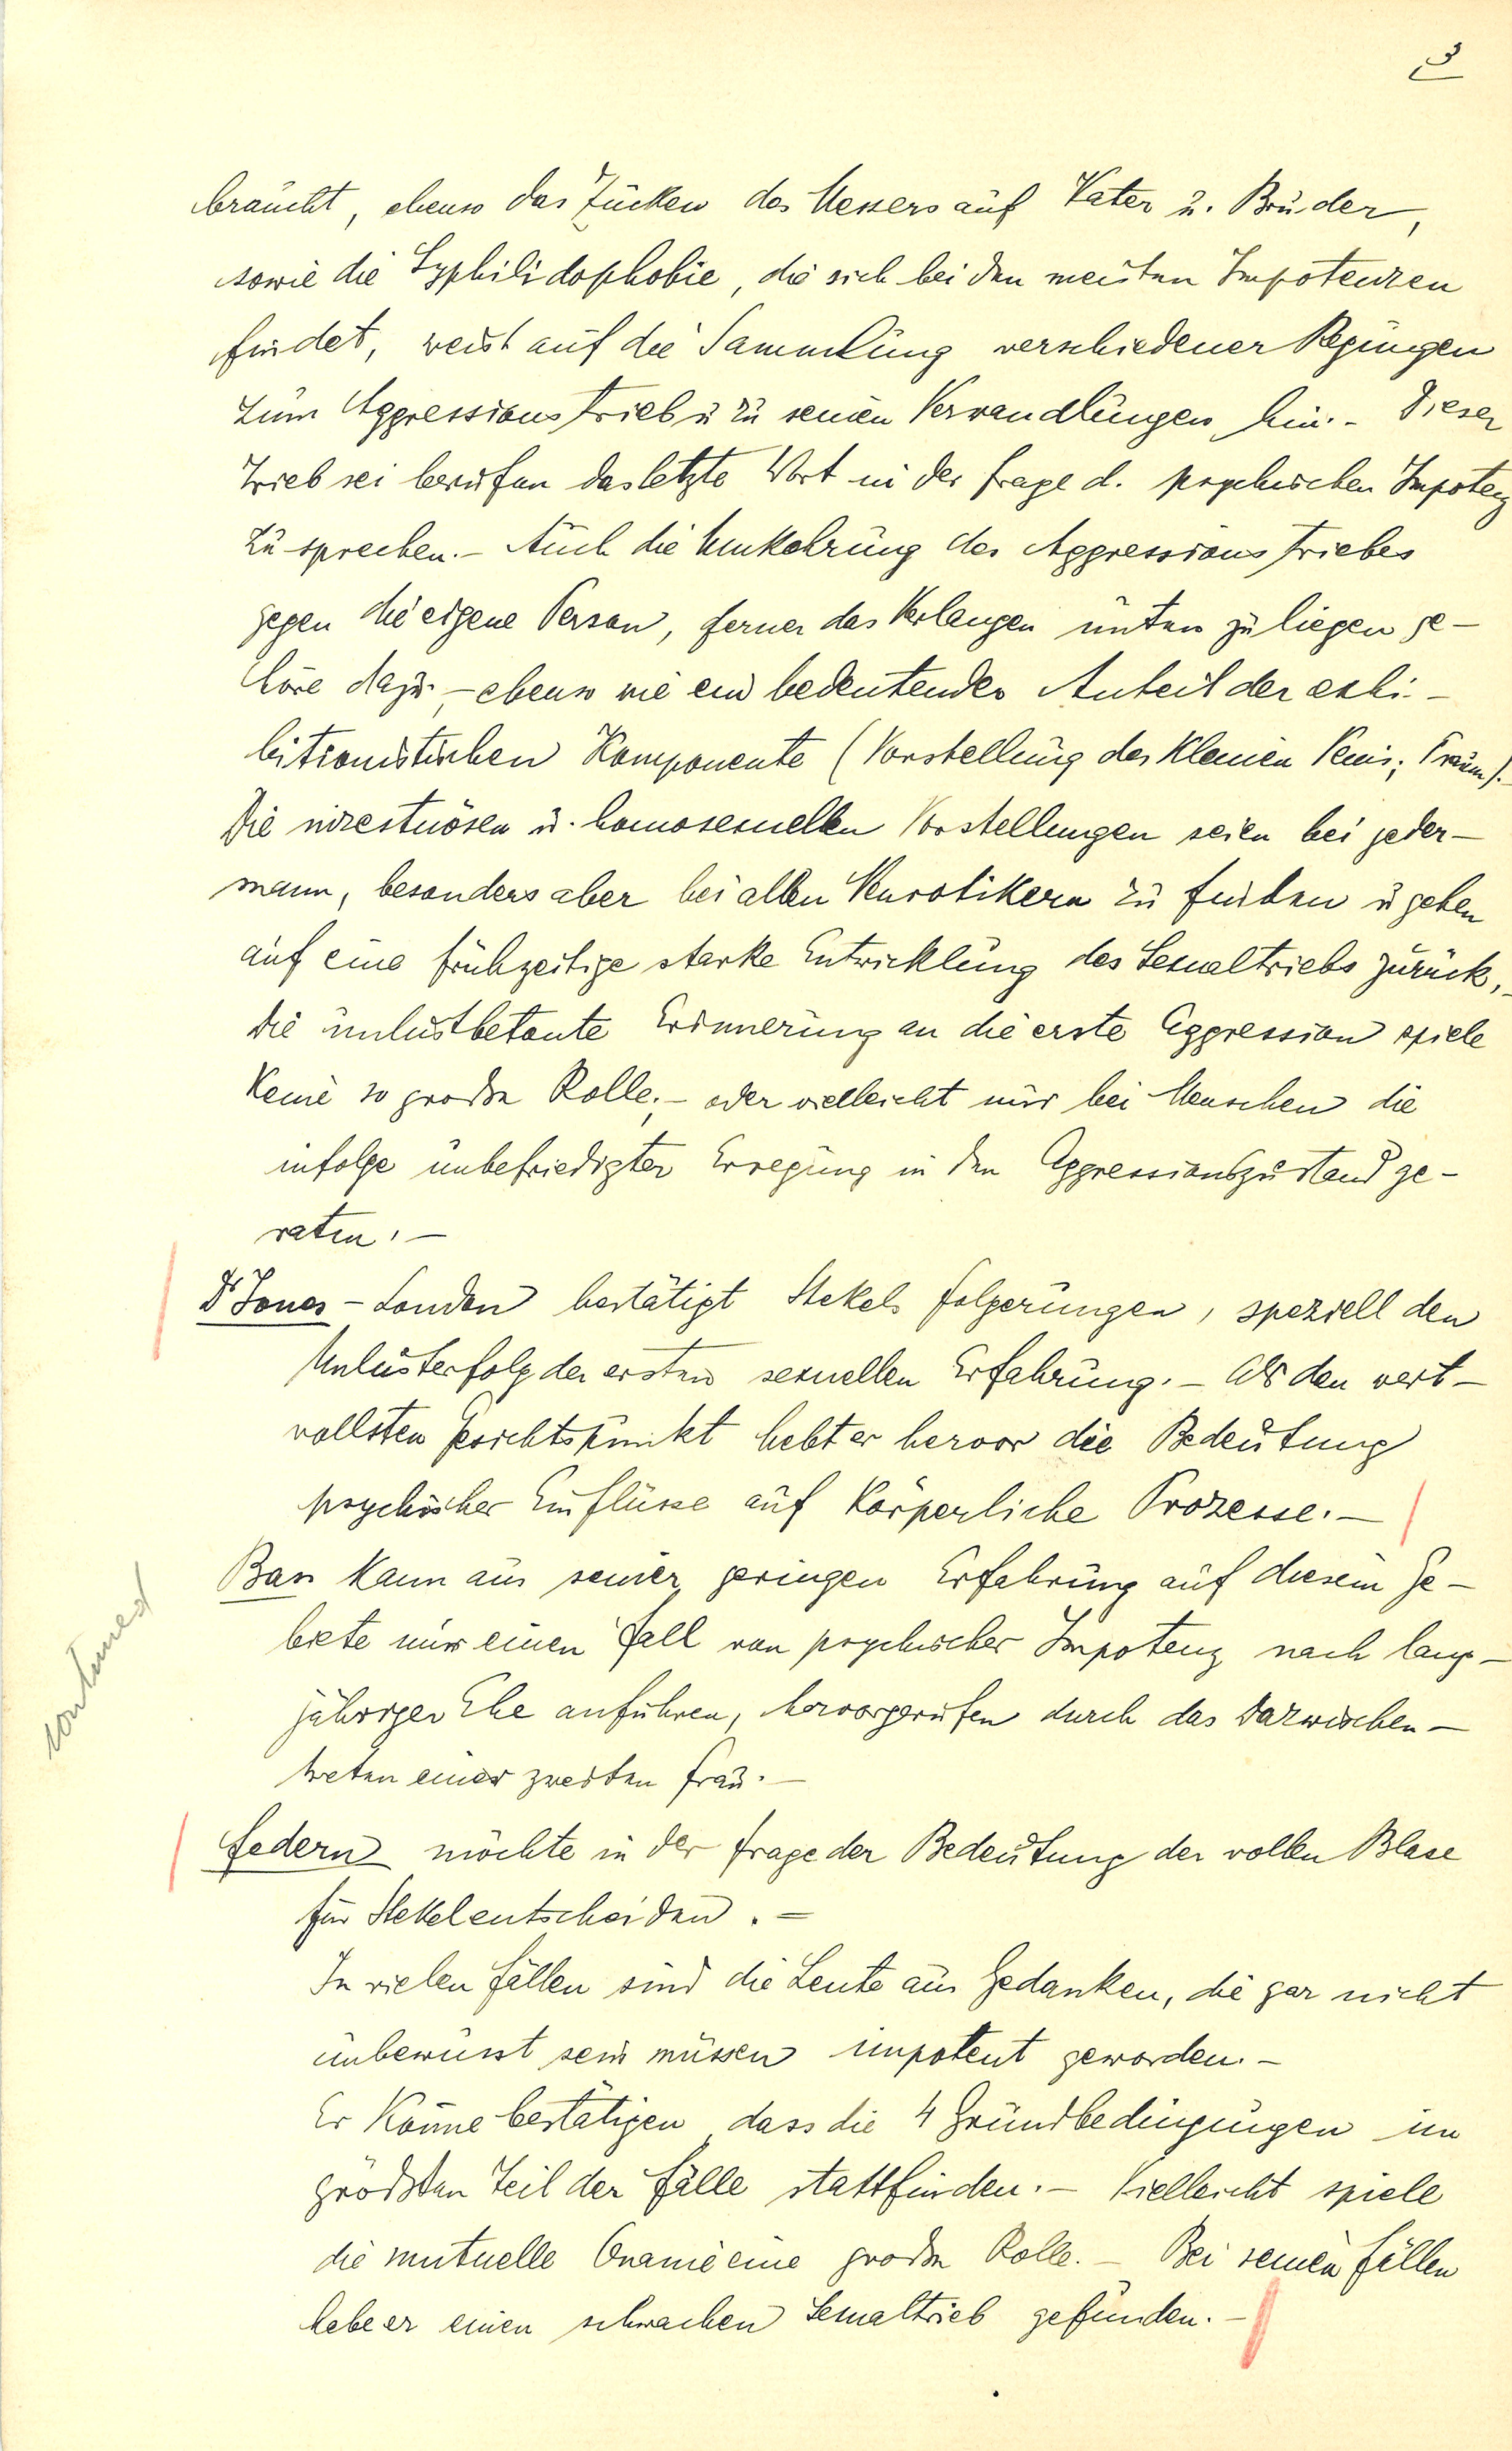 3
braucht, ebenso das Zücken des Messers auf Vater u. Bruder,
sowie die Syphilidophobie, die sich bei den meisten Impotenzen
findet, weist auf die Sammlung verschiedener Regungen
zum Aggressionstrieb u zu seinen Verwandlungen hin. - Dieser
Trieb sei berufen das letzte Wort in der Frage d. psychischen Impotenz
zu sprechen. - Auch die Umkehrung des Aggressionstriebes
gegen die eigene Person, ferner das Verlangen unten zu liegen ge-
höre dazu - ebenso wie ein bedeutender Anteil der exhi-
bitionistischen Komponente (Vorstellung des kleinen Penis; Traum). -
Die inzestuösen u. homosexuellen Vorstellungen seien bei jeder-
mann, besonders aber bei allen Neurotikern zu finden u gehen
auf eine frühzeitige starke Entwicklung des Sexualtriebs zurück, -
die unlustbetonte Erinnerung an die erste Aggression spiele
keine so große Rolle; - oder vielleicht nur bei Menschen die
infolge unbefriedigter Erregung in den Aggressionszustand ge-
raten. -
Dr Jones - London bestätigt Stekels Folgerungen, speziell den
Unlusterfolg der ersten sexuellen Erfahrung. - Als den wert-
vollsten Gesichtspunkt hebt er hervor die Bedeutung
psychischer Einflüsse auf körperliche Prozesse. -
Bass kann aus seiner geringen Erfahrung auf diesem Ge-
biete nur einen Fall von psychischer Impotenz nach lang-
jähriger Ehe anführen, hervorgerufen durch das Dazwischen-
treten einer zweiten Frau. -
continued
Federn möchte in der Frage der Bedeutung der vollen Blase
für Stekel entscheiden. -
In vielen Fällen sind die Leute aus Gedanken, die gar nicht
unbewusst sein müssen impotent geworden. -
Er könne bestätigen, dass die 4 Grundbedingungen im
größten Teil der Fälle stattfinden. - Vielleicht spiele
die mutuelle Onanie eine große Rolle. - Bei seinen Fällen
habe er einen schwachen Sexualtrieb gefunden. -